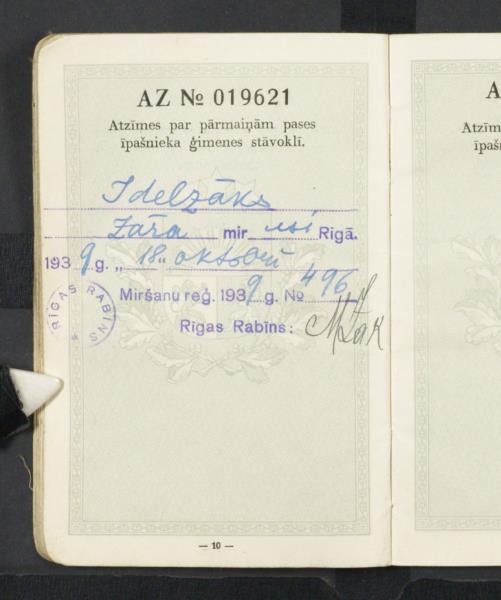 AZ № 019621
Atzīmes par pārmaiņām pases
īpašnieka ģimenes stāvoklī.
Idelzāks
Zāra mir usi Rīgā.
1939 g. „18" oktobrī
Miršanu reģ. 1939 g. № 496
Rīgas Rabīns:
RĪGAS RABĪNS
— 10 —
A
Atzīm
īpaš